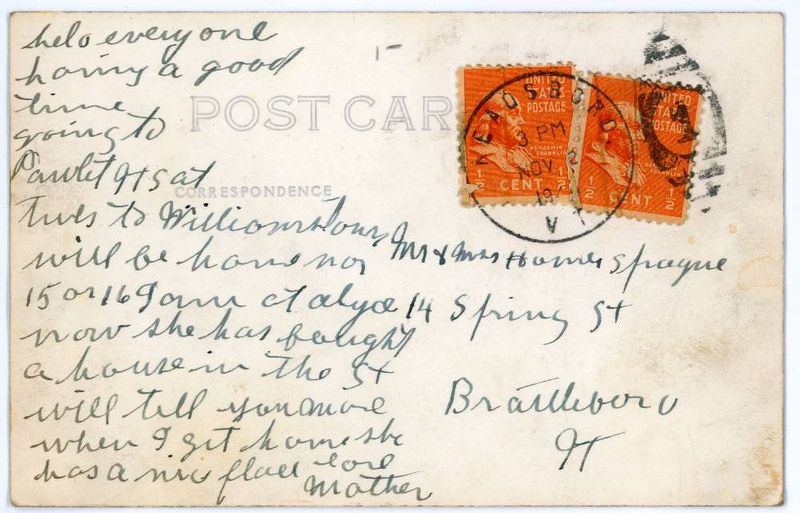 helo everyone
having a good
time
going to
Pawlet Vt Sat
tues to Williamstown
will be home nov
15 or 16 I am at alyce
now she has bought
a house in the St
will till you more
when I get home she
has a nice place love
Mother
POST CAR
CORRESPONDENCE
UNITED
STATES
POSTAGE
BENJAMIN
FRANKLIN
1/2 CENT 1/2
UNITED
STATES
POSTAGE
1/2 CENT 1/2
READSBORO,
3 PM
NOV 2
19
VT
Mr & Mrs Homer Sprague
14 Spring St
Brattleboro
Vt